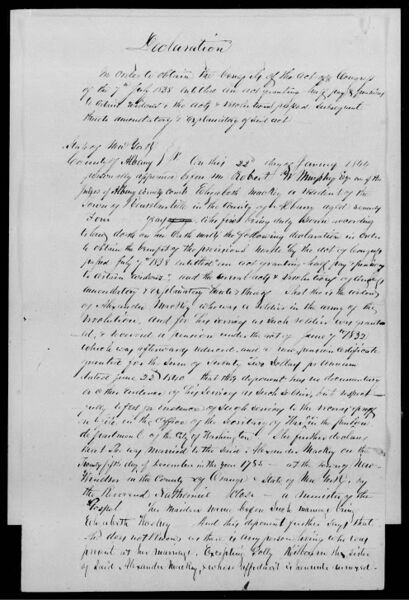 Declaration
In order to obtain the benefit of the act of Congress
of the 7th July 1838 entitled an act granting half pay & pensions
to certain widows & the acts & resolutions passed subsequent
thereto amendatory & explanatory of said act
State of New York
County of Albany } SS. On this 22d day of January 1844
personally appeared before me Robert W Murphy Esq one of the
judges of Albany County Court Elizabeth Mackey a resident of the
Town of in the County of Albany aged seventy
four years who first being duly sworn according
to law doth on her oath make the following declaration in order
to obtain the benefit of the provisions made by the act of Congress
passed July 7th 1838 entitled "an act granting half pay & pensions
to certain widows" and the several acts & resolutions of Congress
amendatory & explanatory thereto That she is the widow
of Alexander Mackey who was a soldier in the army of the
Revolution, and for his services as such soldier was grant
ed, & received a pension under the act of June 7th 1832
which was afterwards reduced and a new pension certificate
granted for the sum of Seventy Two Dollars per annum
dated June 22d 1840 that this deponent has no documentary
or other evidence of his services as such soldier but respect
fully refers for evidence of such services to the
in the office of the Secretary of War, in the pension
department of the City of Washington. She further declares
that she was married to the said Alexander Mackey on the
Twenty fifth day of December in the year 1784 at the town of New
Windsor in the County of Orange & State of New York, by
the Reverend Nathaniel a minister of the
Gospel her maiden name before such marriage being
Elizabeth And this deponent further says that
she does not know as there is any person living who was
present at her marriage, excepting Polly the sister
of said Alexander Mackey, whose affidavit is hereunto annexed.